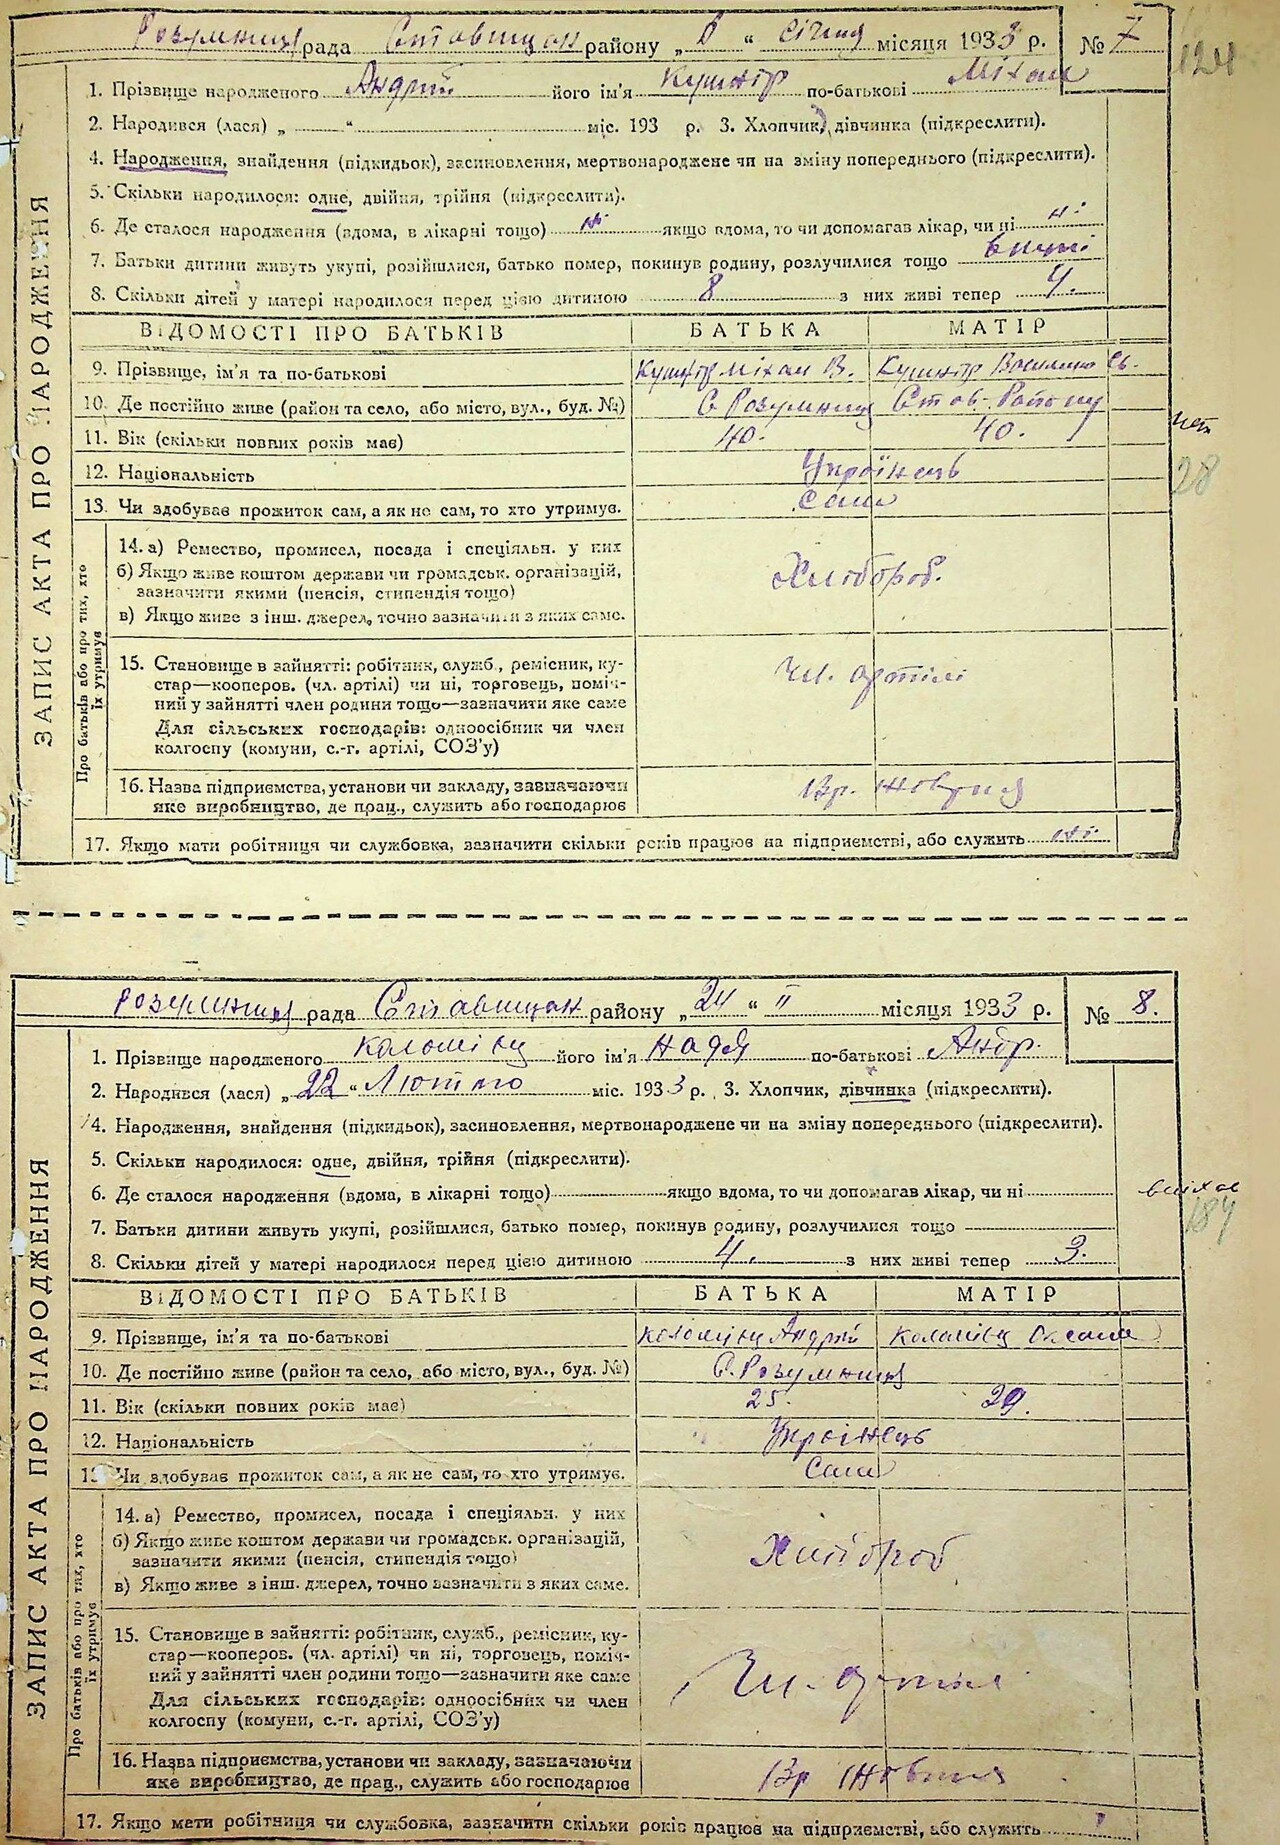 Розумниця рада Ставищан району „ 8 “ січня місяця 1933 р. № 7
124
1. Прізвище народженого Андрій його ім'я Кушнір по-батькові Міхал
2. Народився (лася) „ “ міс. 193 р. 3. Хлопчик, дівчинка (підкреслити).
4. Народження, знайдення (підкидьок), засиновлення, мертвонароджене чи на зміну попереднього (підкреслити).
5. Скільки народилося: одне, двійня, трійня (підкреслити).
6. Де сталося народження (вдома, в лікарні тощо) ні якщо вдома, то чи допомагав лікар, чи ні ні
7. Батьки дитини живуть укупі, розійшлися, батько помер, покинув родину, розлучилися тощо вкупі
8. Скільки дітей у матері народилося перед цією дитиною 8 з них живі тепер 4.
ВІДОМОСТІ ПРО БАТЬКІВ БАТЬКА МАТІР
9. Прізвище, ім'я та по-батькові Кушнір Міхал В. Кушнір
10. Де постійно живе (район та село, або місто, вул., буд. №) С Розумниця Став. Району
11. Вік (скільки повних років має) 40. 40.
12. Національність Українець
28
13. Чи здобуває прожиток сам, а як не сам, то хто утримує. сам
14. а) Ремество, промисел, посада і спеціяльн. у них
б) Якщо живе коштом держави чи громадськ. організацій,
зазначити якими (пенсія, стипендія тощо) Хлібороб.
в) Якщо живе з інш. джерел, точно зазначити з яких саме.
15. Становище в зайнятті: робітник, служб., ремісник, ку-
стар—кооперов. (чл. артілі) чи ні, торговець, поміч- Чл. артілі
ний у зайнятті член родини тощо—зазначити яке саме
Для сільських господарів: одноосібник чи член
колгоспу (комуни, с.-г. артілі, СОЗ'у)
16. Назва підприємства, установи чи закладу, зазначаючи
яке виробництво, де прац., служить або господарює
17. Якщо мати робітниця чи службовка, зазначити скільки років працює на підприємстві, або служить ні
ЗАПИС АКТА ПРО НАРОДЖЕННЯ
Про батьків або про тих, хто
їх утримує
Розумниця рада Ставищан району „ 24 “ II місяця 1933 р. № 8.
1. Прізвище народженого Коломієц його ім'я Надя по-батькові Андр.
2. Народився (лася) „ 22 “ Лютого міс. 1933 р. 3. Хлопчик, дівчинка (підкреслити).
4. Народження, знайдення (підкидьок), засиновлення, мертвонароджене чи на зміну попереднього (підкреслити).
5. Скільки народилося: одне, двійня, трійня (підкреслити).
6. Де сталося народження (вдома, в лікарні тощо) якщо вдома, то чи допомагав лікар, чи ні
184
7. Батьки дитини живуть укупі, розійшлися, батько помер, покинув родину, розлучилися тощо
8. Скільки дітей у матері народилося перед цією дитиною 4. з них живі тепер 3.
ВІДОМОСТІ ПРО БАТЬКІВ БАТЬКА МАТІР
9. Прізвище, ім'я та по-батькові Коломієц Андрій Коломієц Оксана
10. Де постійно живе (район та село, або місто, вул., буд. №) С. Розумниця
11. Вік (скільки повних років має) 25. 29.
12. Національність Українець
13. Чи здобуває прожиток сам, а як не сам, то хто утримує. сам
14. а) Ремество, промисел, посада і спеціяльн. у них
б) Якщо живе коштом держави чи громадськ. організацій,
зазначити якими (пенсія, стипендія тощо) Хлібороб
в) Якщо живе з інш. джерел, точно зазначити з яких саме.
15. Становище в зайнятті: робітник, служб., ремісник, ку-
стар—кооперов. (чл. артілі) чи ні, торговець, поміч-
ний у зайнятті член родини тощо—зазначити яке саме Чл. артілі
Для сільських господарів: одноосібник чи член
колгоспу (комуни, с.-г. артілі, СОЗ'у)
16. Назва підприємства, установи чи закладу, зазначаючи
яке виробництво, де прац., служить або господарює
17. Якщо мати робітниця чи службовка, зазначити скільки років працює на підприємстві, або служить
ЗАПИС АКТА ПРО НАРОДЖЕННЯ
Про батьків або про тих, хто
їх утримує